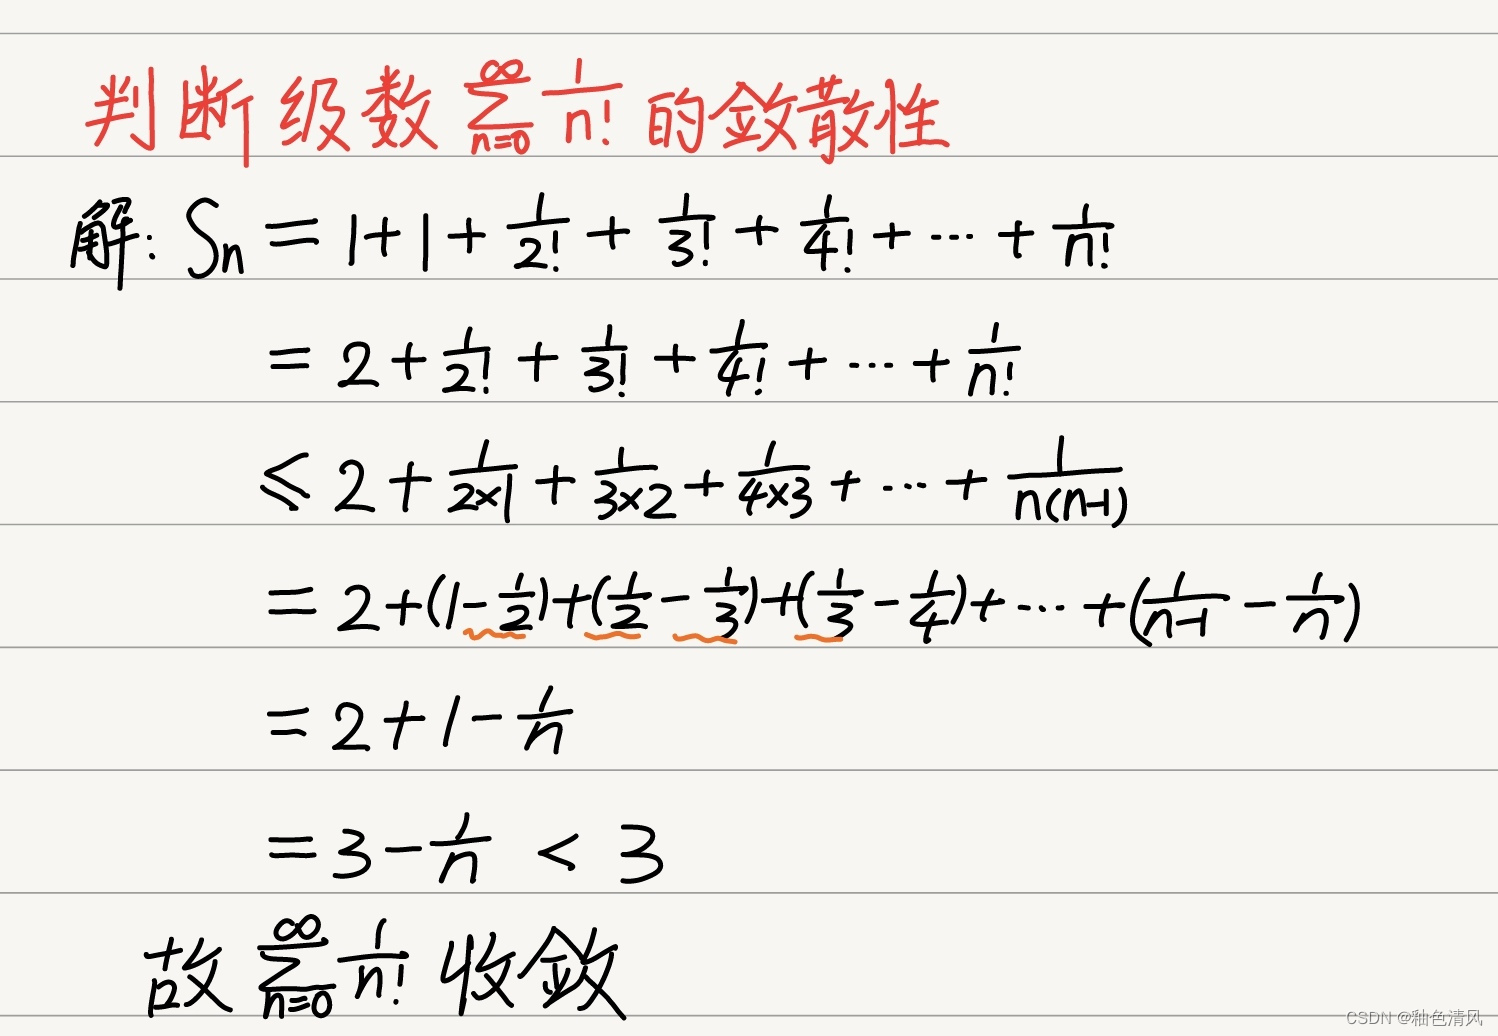 判断级数 ∑_{n=0}^{∞} 1/n! 的敛散性
解: Sn = 1 + 1 + 1/2! + 1/3! + 1/4! + ... + 1/n!
= 2 + 1/2! + 1/3! + 1/4! + ... + 1/n!
≤ 2 + 1/(2×1) + 1/(3×2) + 1/(4×3) + ... + 1/(n(n-1))
= 2 + (1 - 1/2) + (1/2 - 1/3) + (1/3 - 1/4) + ... + (1/(n-1) - 1/n)
= 2 + 1 - 1/n
= 3 - 1/n < 3
故 ∑_{n=0}^{∞} 1/n! 收敛
CSDN @釉色清风